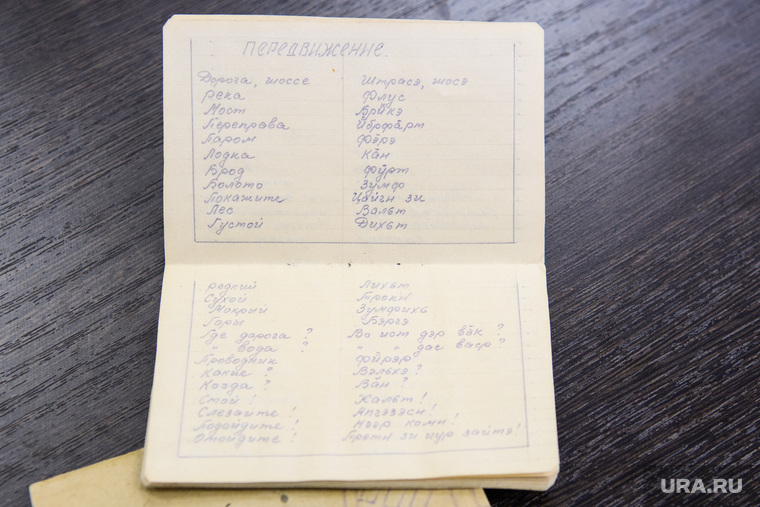 ПЕРЕДВИЖЕНИЕ.
Дорога, шоссе Штрасэ, шосэ
Река Флус
Мост Брйкэ
Переправа Йбэрфарт
Паром Фэрэ
Лодка Кан
Брод Фурт
Болото Зумф
Покажите Цайгн зи
Лес Вальт
Густой Дихьт
редкий Лихьт
Сухой Трокн
Мокрый Зумфихь
Горы Бэргэ
Где дорога ? Во ист дэр вэк ?
" вода ? " " дас васр ?
Проводник Фйрэр
Какие ? Вэльхэ ?
Когда ? Ван ?
Стой ! Хальт !
Слезайте ! Апгэзэсн !
Подойдите ! Комн !
Отойдите ! Трэтн зи цур зайтэ !
URA.RU